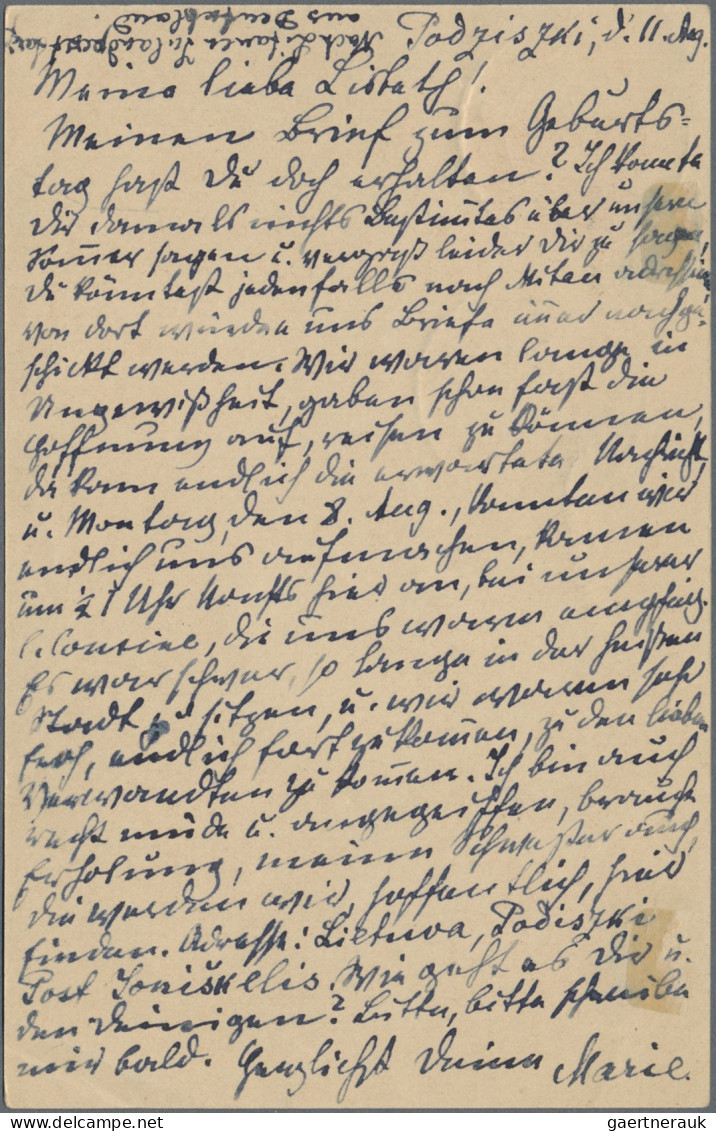 Nach Litauen Inlandporto
aus Deutschland
Podziszki, d. 11. Aug.
Meine liebe Lisbeth!
Meinen Brief zum Geburts=
tag hast Du doch erhalten? Ich konnte
Dir damals nichts Bestimmtes über unsere
Sommer sagen u. vergaß leider Dir zu sagen,
Du könntest jedenfalls nach Mitau
von dort würden uns Briefe immer nachge-
schickt werden. Wir waren lange in
Ungewißheit, gaben schon fast die
Hoffnung auf, reisen zu können,
da kam endlich die erwartete Nachricht,
u. Montag, den 8. Aug., konnten wir
endlich uns aufmachen, kamen
um ½ 1 Uhr Nachts hier an, bei unserer
Cousine, die uns warm empfing.
Es war schwer, so lange in der heißen
Stadt zu sitzen, u. wir waren sehr
froh, endlich fortzukommen, zu den lieben
Verwandten zu kommen. Ich bin auch
recht müde u. angegriffen, brauche
Erholung, meine Schwester auch,
die werden wir, hoffentlich, hier
finden. Adresse: Lietuwa, Podiszki
Post Joniškelis. Wie geht es Dir u.
den Deinigen? Bitte, bitte schreibe
mir bald. Herzlichst Deine Marie.
gaertnerauk